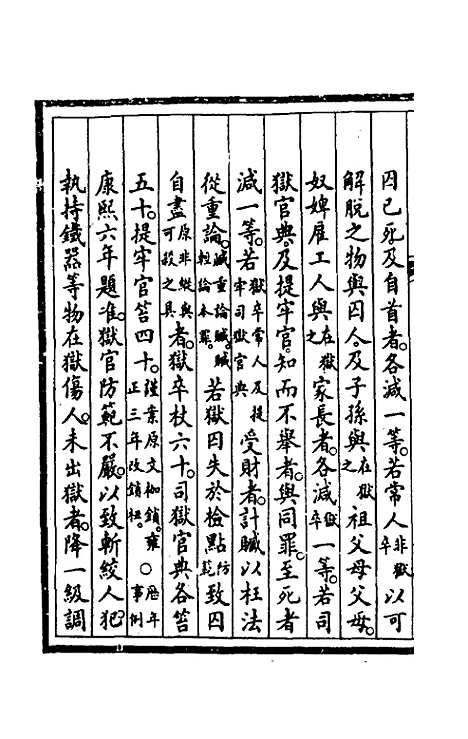 囚已死及自首者。各減一等。若常人非獄卒以可
解脫之物與囚人。及子孫與在獄之祖父母父母。
奴婢雇工人與在獄之家長者。各減獄卒一等。若司
獄官典。及提牢官。知而不舉者。與同罪。至死者
減一等。若獄卒常人及提牢司獄官典受財者。計贓以枉法
從重論。贓重論贓。贓輕論本罪。若獄囚失於檢點防範致囚
自盡原非縱與可殺之具者。獄卒杖六十。司獄官典各笞
五十。提牢官笞四十。謹案原文枷鎖。雍正三年改鎖杻。○歷年事例
康熙六年題准。獄官防範不嚴。以致斬絞人犯。
執持鐵器等物在獄傷人。未出獄者。降一級調